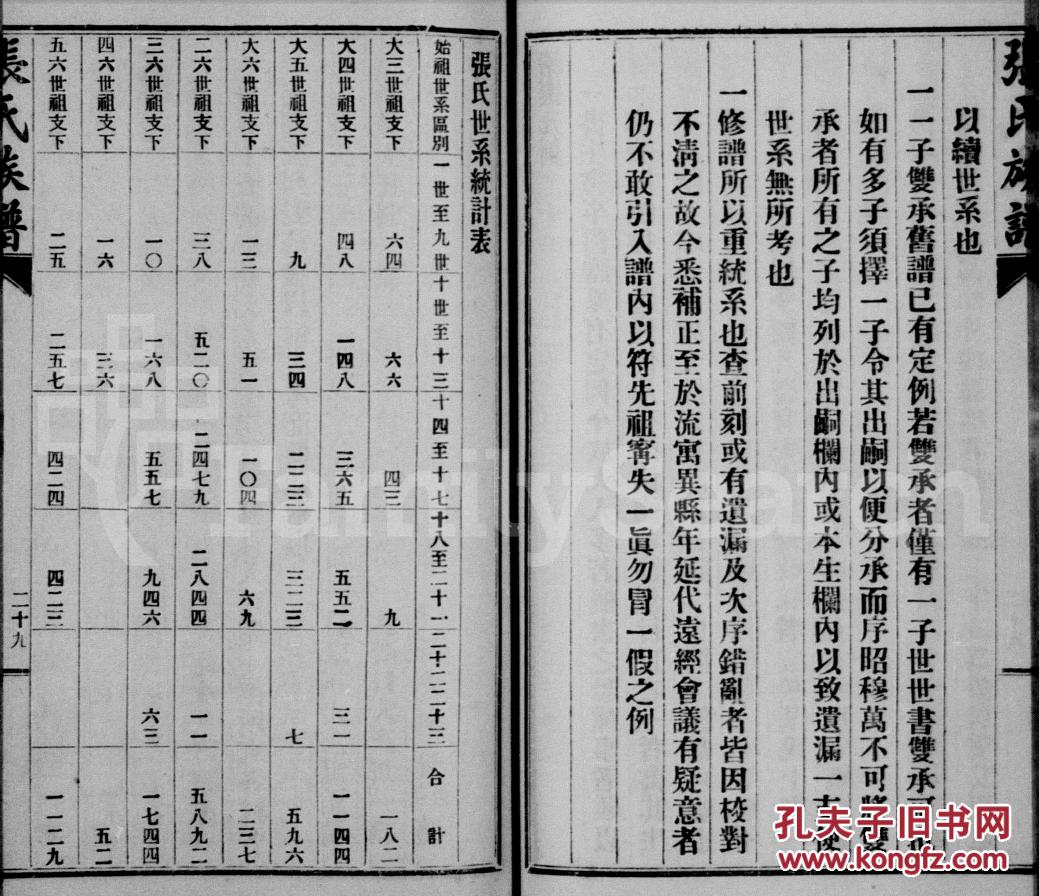 張氏族譜
以續世系也
一一子雙承舊譜已有定例若雙承者僅有一子世世書雙承可也
如有多子須擇一子令其出嗣以便分承而序昭穆萬不可將雙
承者所有之子均列於出嗣欄內或本生欄內以致遺漏一支使
世系無所考也
一修譜所以重統系也查前刻或有遺漏及次序錯亂者皆因校對
不淸之故今悉補正至於流寓異縣年延代遠經會議有疑意者
仍不敢引入譜內以符先祖寗失一眞勿冒一假之例
張氏世系統計表
始祖世系區別 一世至九世 十世至十三 十四至十七 十八至二十一 二十二二十三 合計
大三世祖支下 六四 六六 四三 九 一八二
大四世祖支下 四八 一四八 三六五 五五二 三一 一一四四
大五世祖支下 九 三四 二二三 三二三 七 五九六
大六世祖支下 一三 五一 一〇四 六九 二三七
二六世祖支下 三八 五二〇 二四七九 二八四四 一一 五八九二
三六世祖支下 一〇 一六八 五五七 九四六 六三 一七四四
四六世祖支下 一六 三六 五二
五六世祖支下 二五 二五七 四二四 四二三 一一二九
張氏族譜
二十九
FamilySearch
孔夫子旧书网
www.kongfz.com